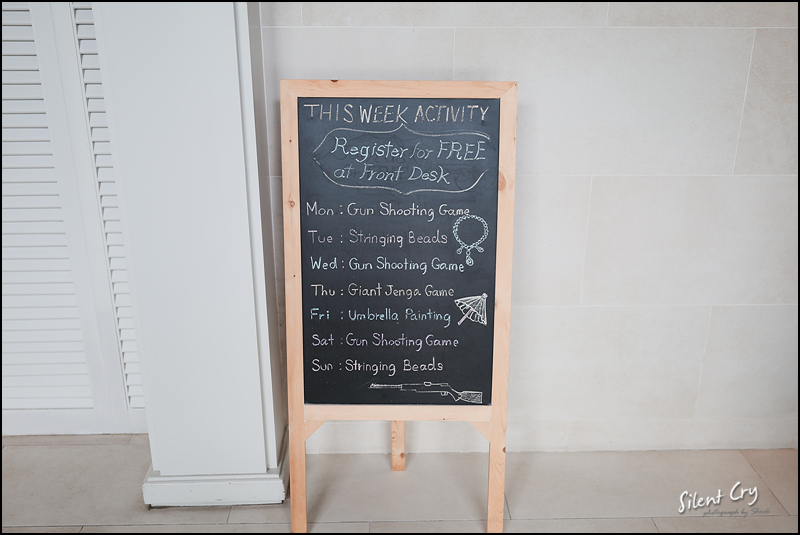 THIS WEEK ACTIVITY
Register for FREE
at Front Desk
Mon : Gun Shooting Game
Tue : Stringing Beads
Wed : Gun Shooting Game
Thu : Giant Jenga Game
Fri : Umbrella Painting
Sat : Gun Shooting Game
Sun : Stringing Beads
Silent Cry
photograph by